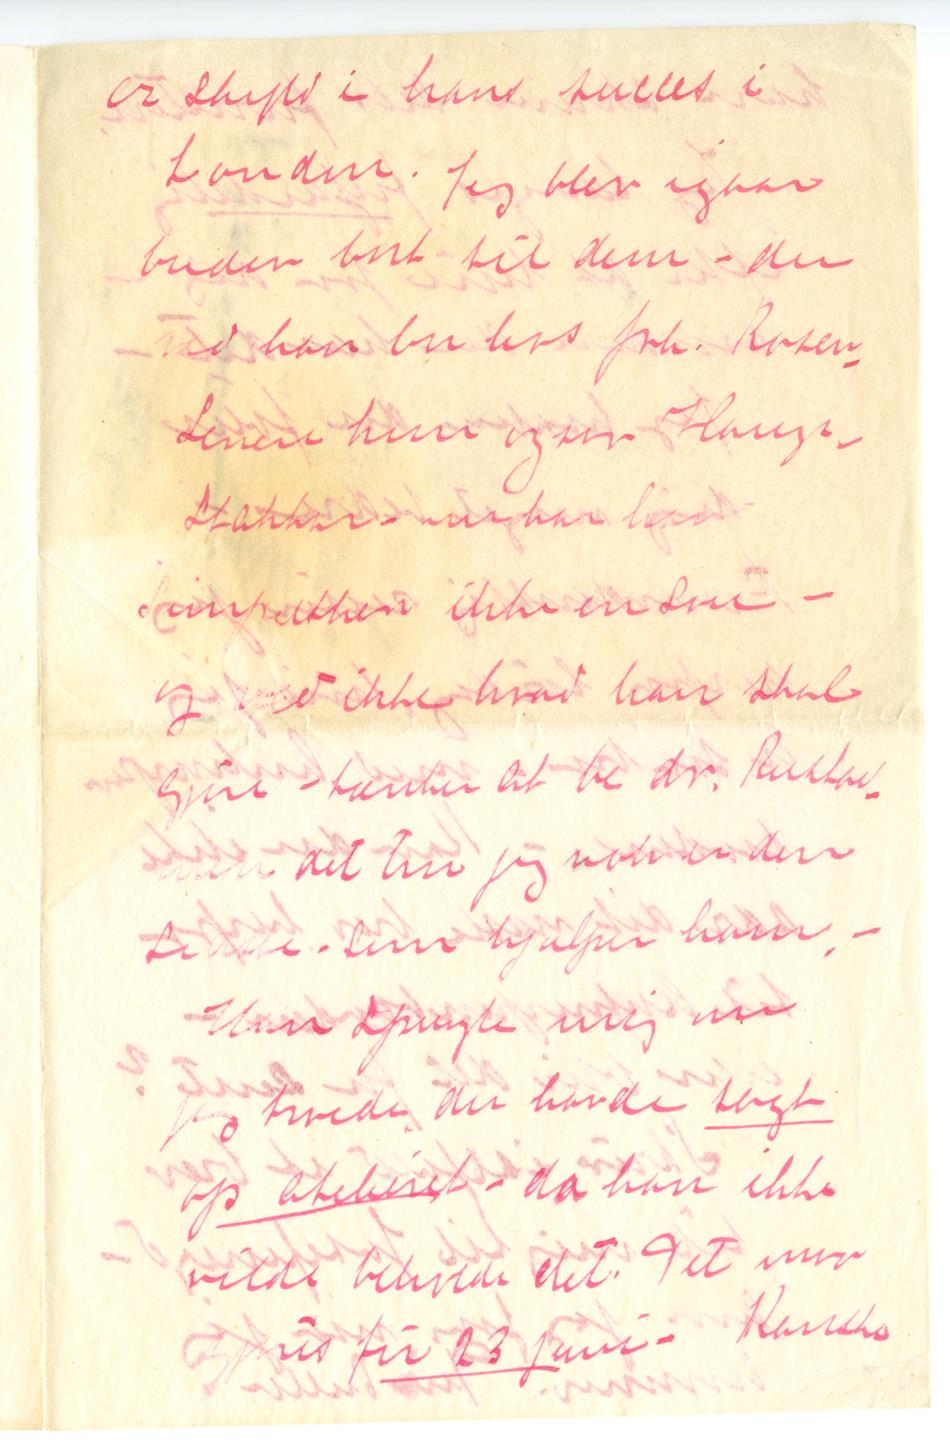 er skyld i hans succes i
London. Jeg blev igaar
buden bort til dem - du
ved han bor hos frk. Rosen-
 hun og saa Haugs-
Stakkar - nu har
 ikke en Sou -
og ved ikke hvad han skal
gjøre - tænker at be dr. Rustad-
men det tror jeg nok er den
sidste - som hjælper ham, -
Han spurgte mig om
jeg troede du havde sagt
op atelieret - da han ikke
vilde behøve det. Det maa
gjøres før 23 juni - Kanske